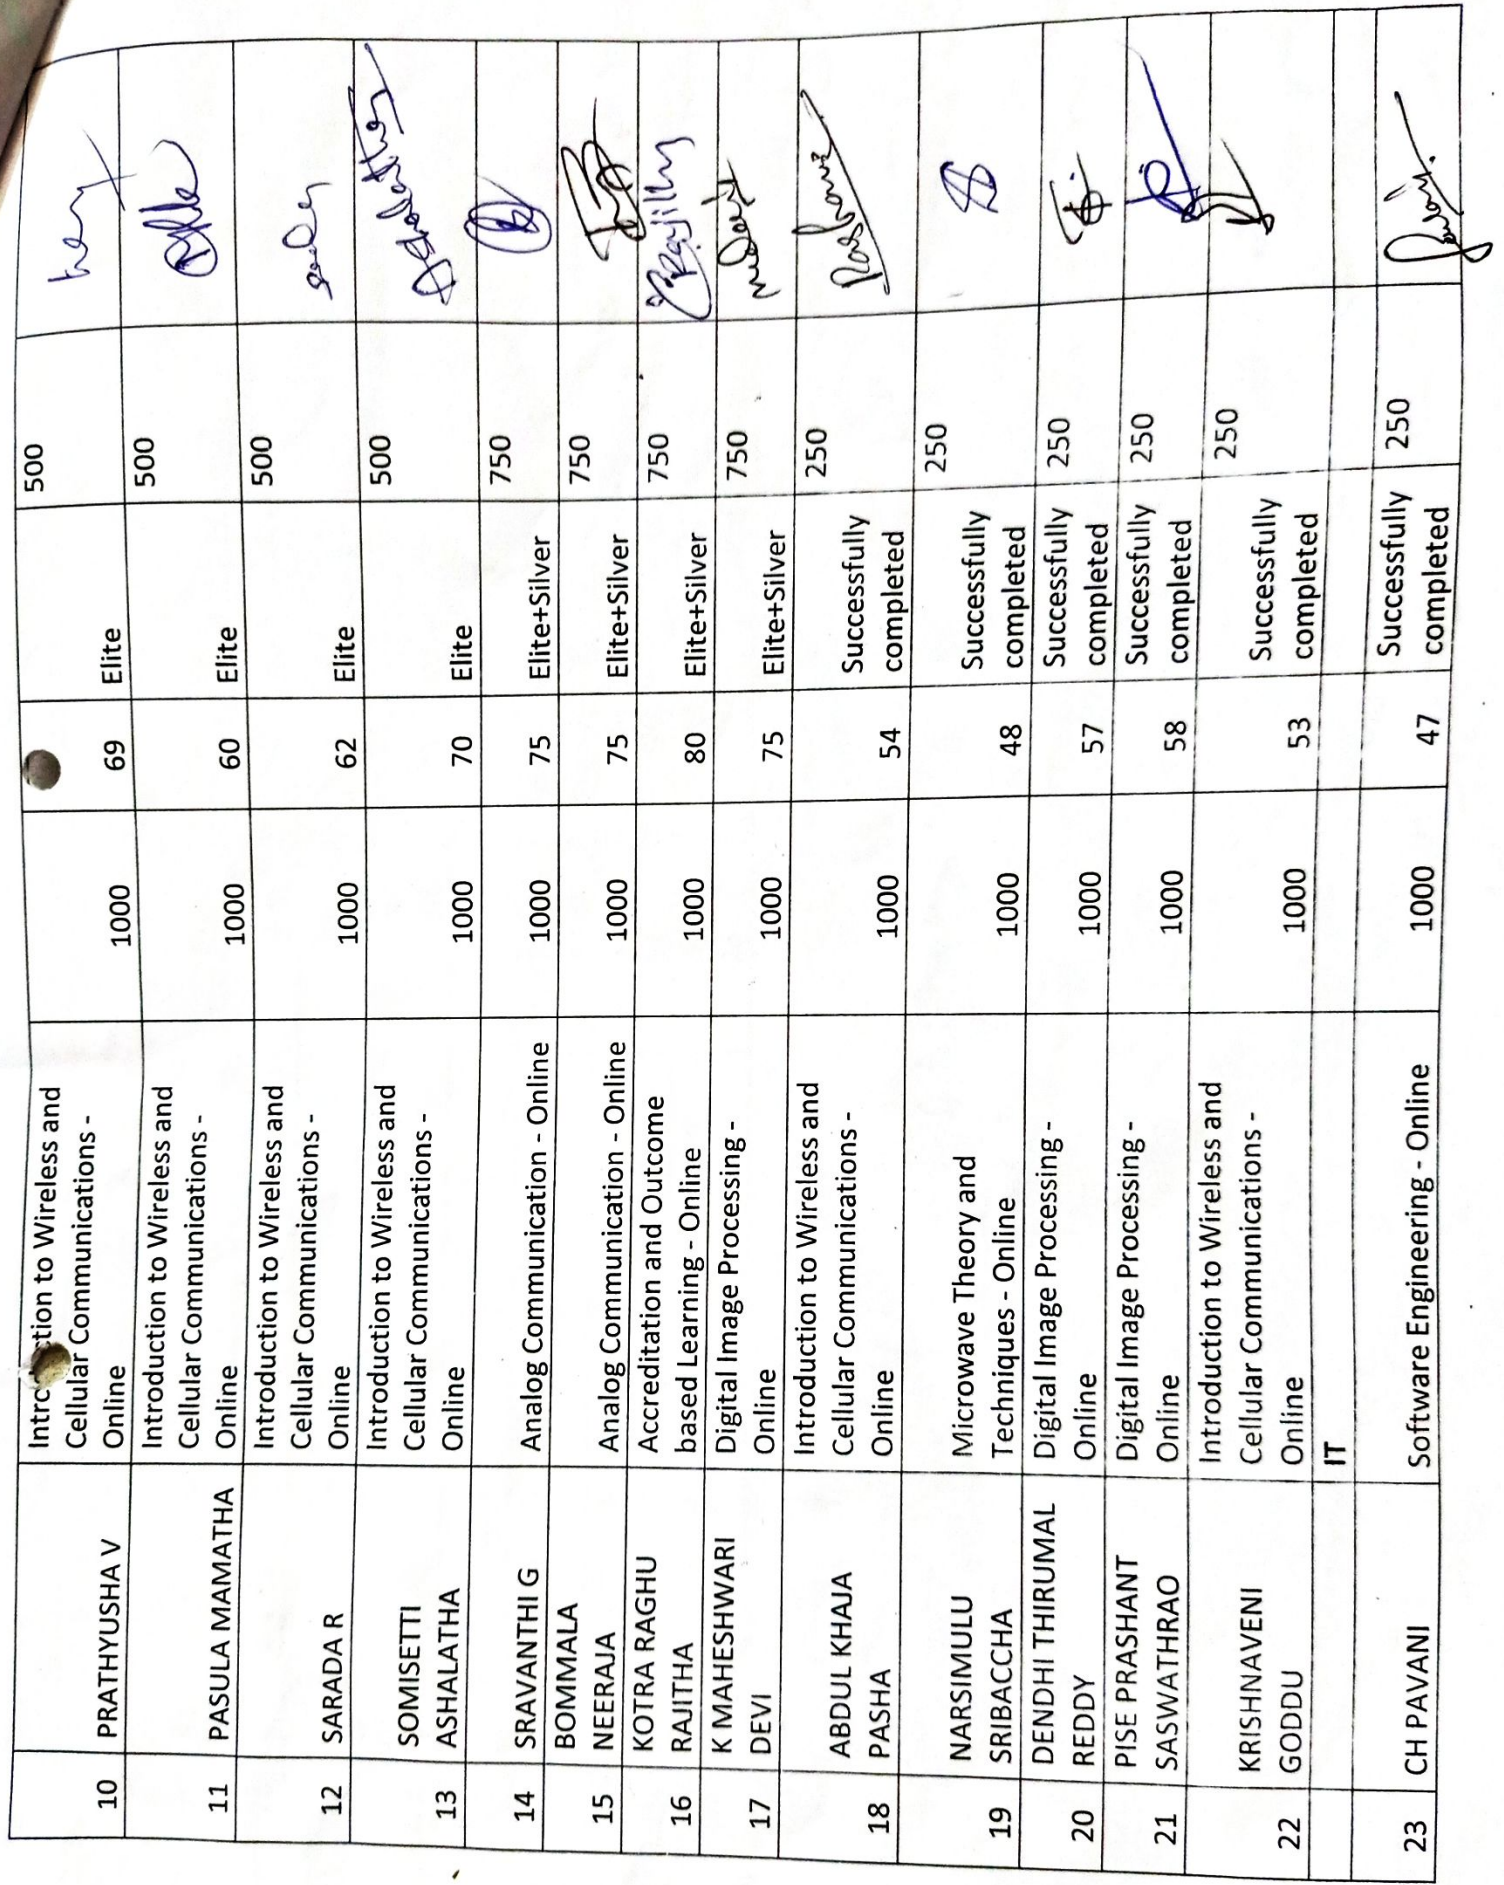 10 PRATHYUSHA V Introduction to Wireless and Cellular Communications - Online 1000 69 Elite 500
11 PASULA MAMATHA Introduction to Wireless and Cellular Communications - Online 1000 60 Elite 500
12 SARADA R Introduction to Wireless and Cellular Communications - Online 1000 62 Elite 500
13 SOMISETTI ASHALATHA Introduction to Wireless and Cellular Communications - Online 1000 70 Elite 500
14 SRAVANTHI G Analog Communication - Online 1000 75 Elite+Silver 750
15 BOMMALA NEERAJA Analog Communication - Online 1000 75 Elite+Silver 750
16 KOTRA RAGHU RAJITHA Accreditation and Outcome based Learning - Online 1000 80 Elite+Silver 750
17 K MAHESHWARI DEVI Digital Image Processing - Online 1000 75 Elite+Silver 750
18 ABDUL KHAJA PASHA Introduction to Wireless and Cellular Communications - Online 1000 54 Successfully completed 250
19 NARSIMULU SRIBACCHA Microwave Theory and Techniques - Online 1000 48 Successfully completed 250
20 DENDHI THIRUMAL REDDY Digital Image Processing - Online 1000 57 Successfully completed 250
21 PISE PRASHANT SASWATHRAO Digital Image Processing - Online 1000 58 Successfully completed 250
22 KRISHNAVENI GODDU Introduction to Wireless and Cellular Communications - Online 1000 53 Successfully completed 250
IT
23 CH PAVANI Software Engineering - Online 1000 47 Successfully completed 250